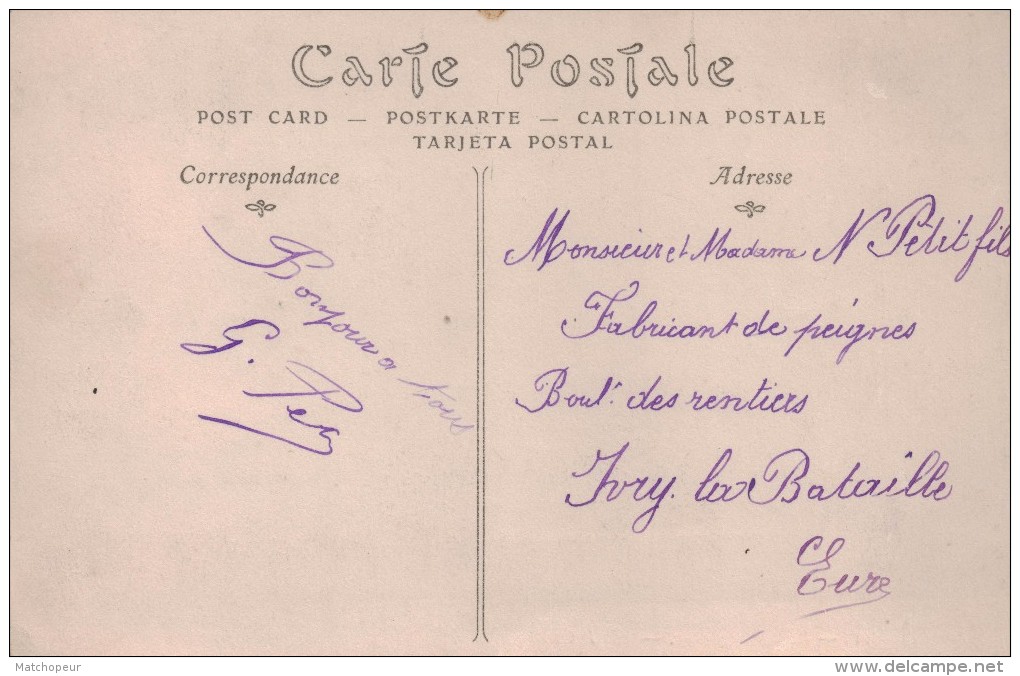 Carte Postale
POST CARD — POSTKARTE — CARTOLINA POSTALE
TARJETA POSTAL
Correspondance
Bonjour a tous
G. 
Adresse
Monsieur et Madame N Petit fils
Fabricant de peignes
Boul.t des rentiers
Ivry. la Bataille
Eure
Matchopeur
www.delcampe.net